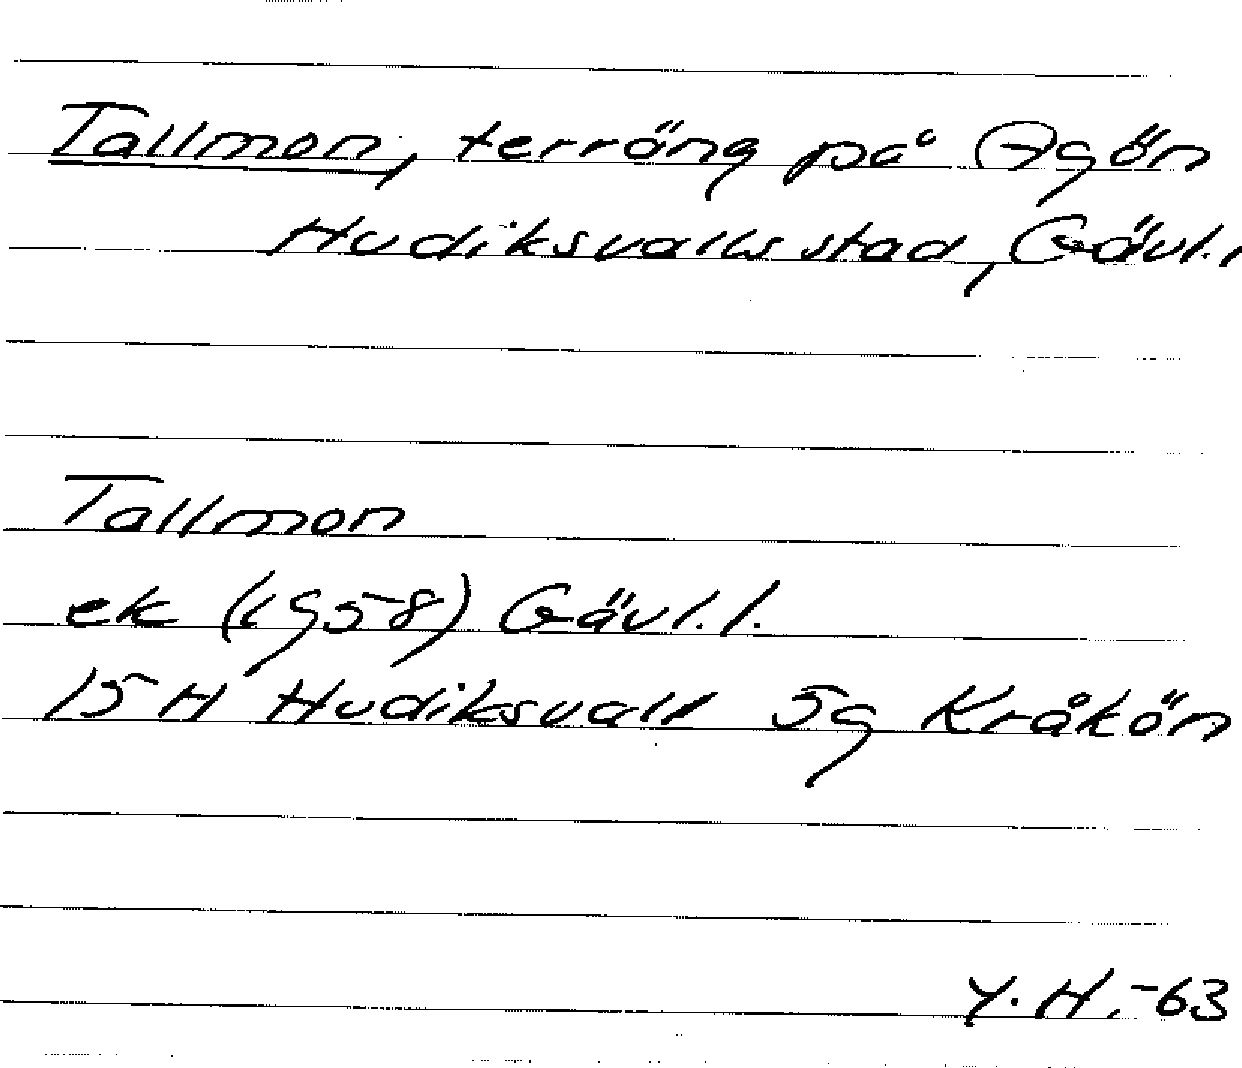 Tallmon, terräng på Agön
Hudiksvalls stad, Gävl. l
Tallmon
ek (1958) Gävl. l.
15 H Hudiksvall 5g Kråkön
Y. H. -63